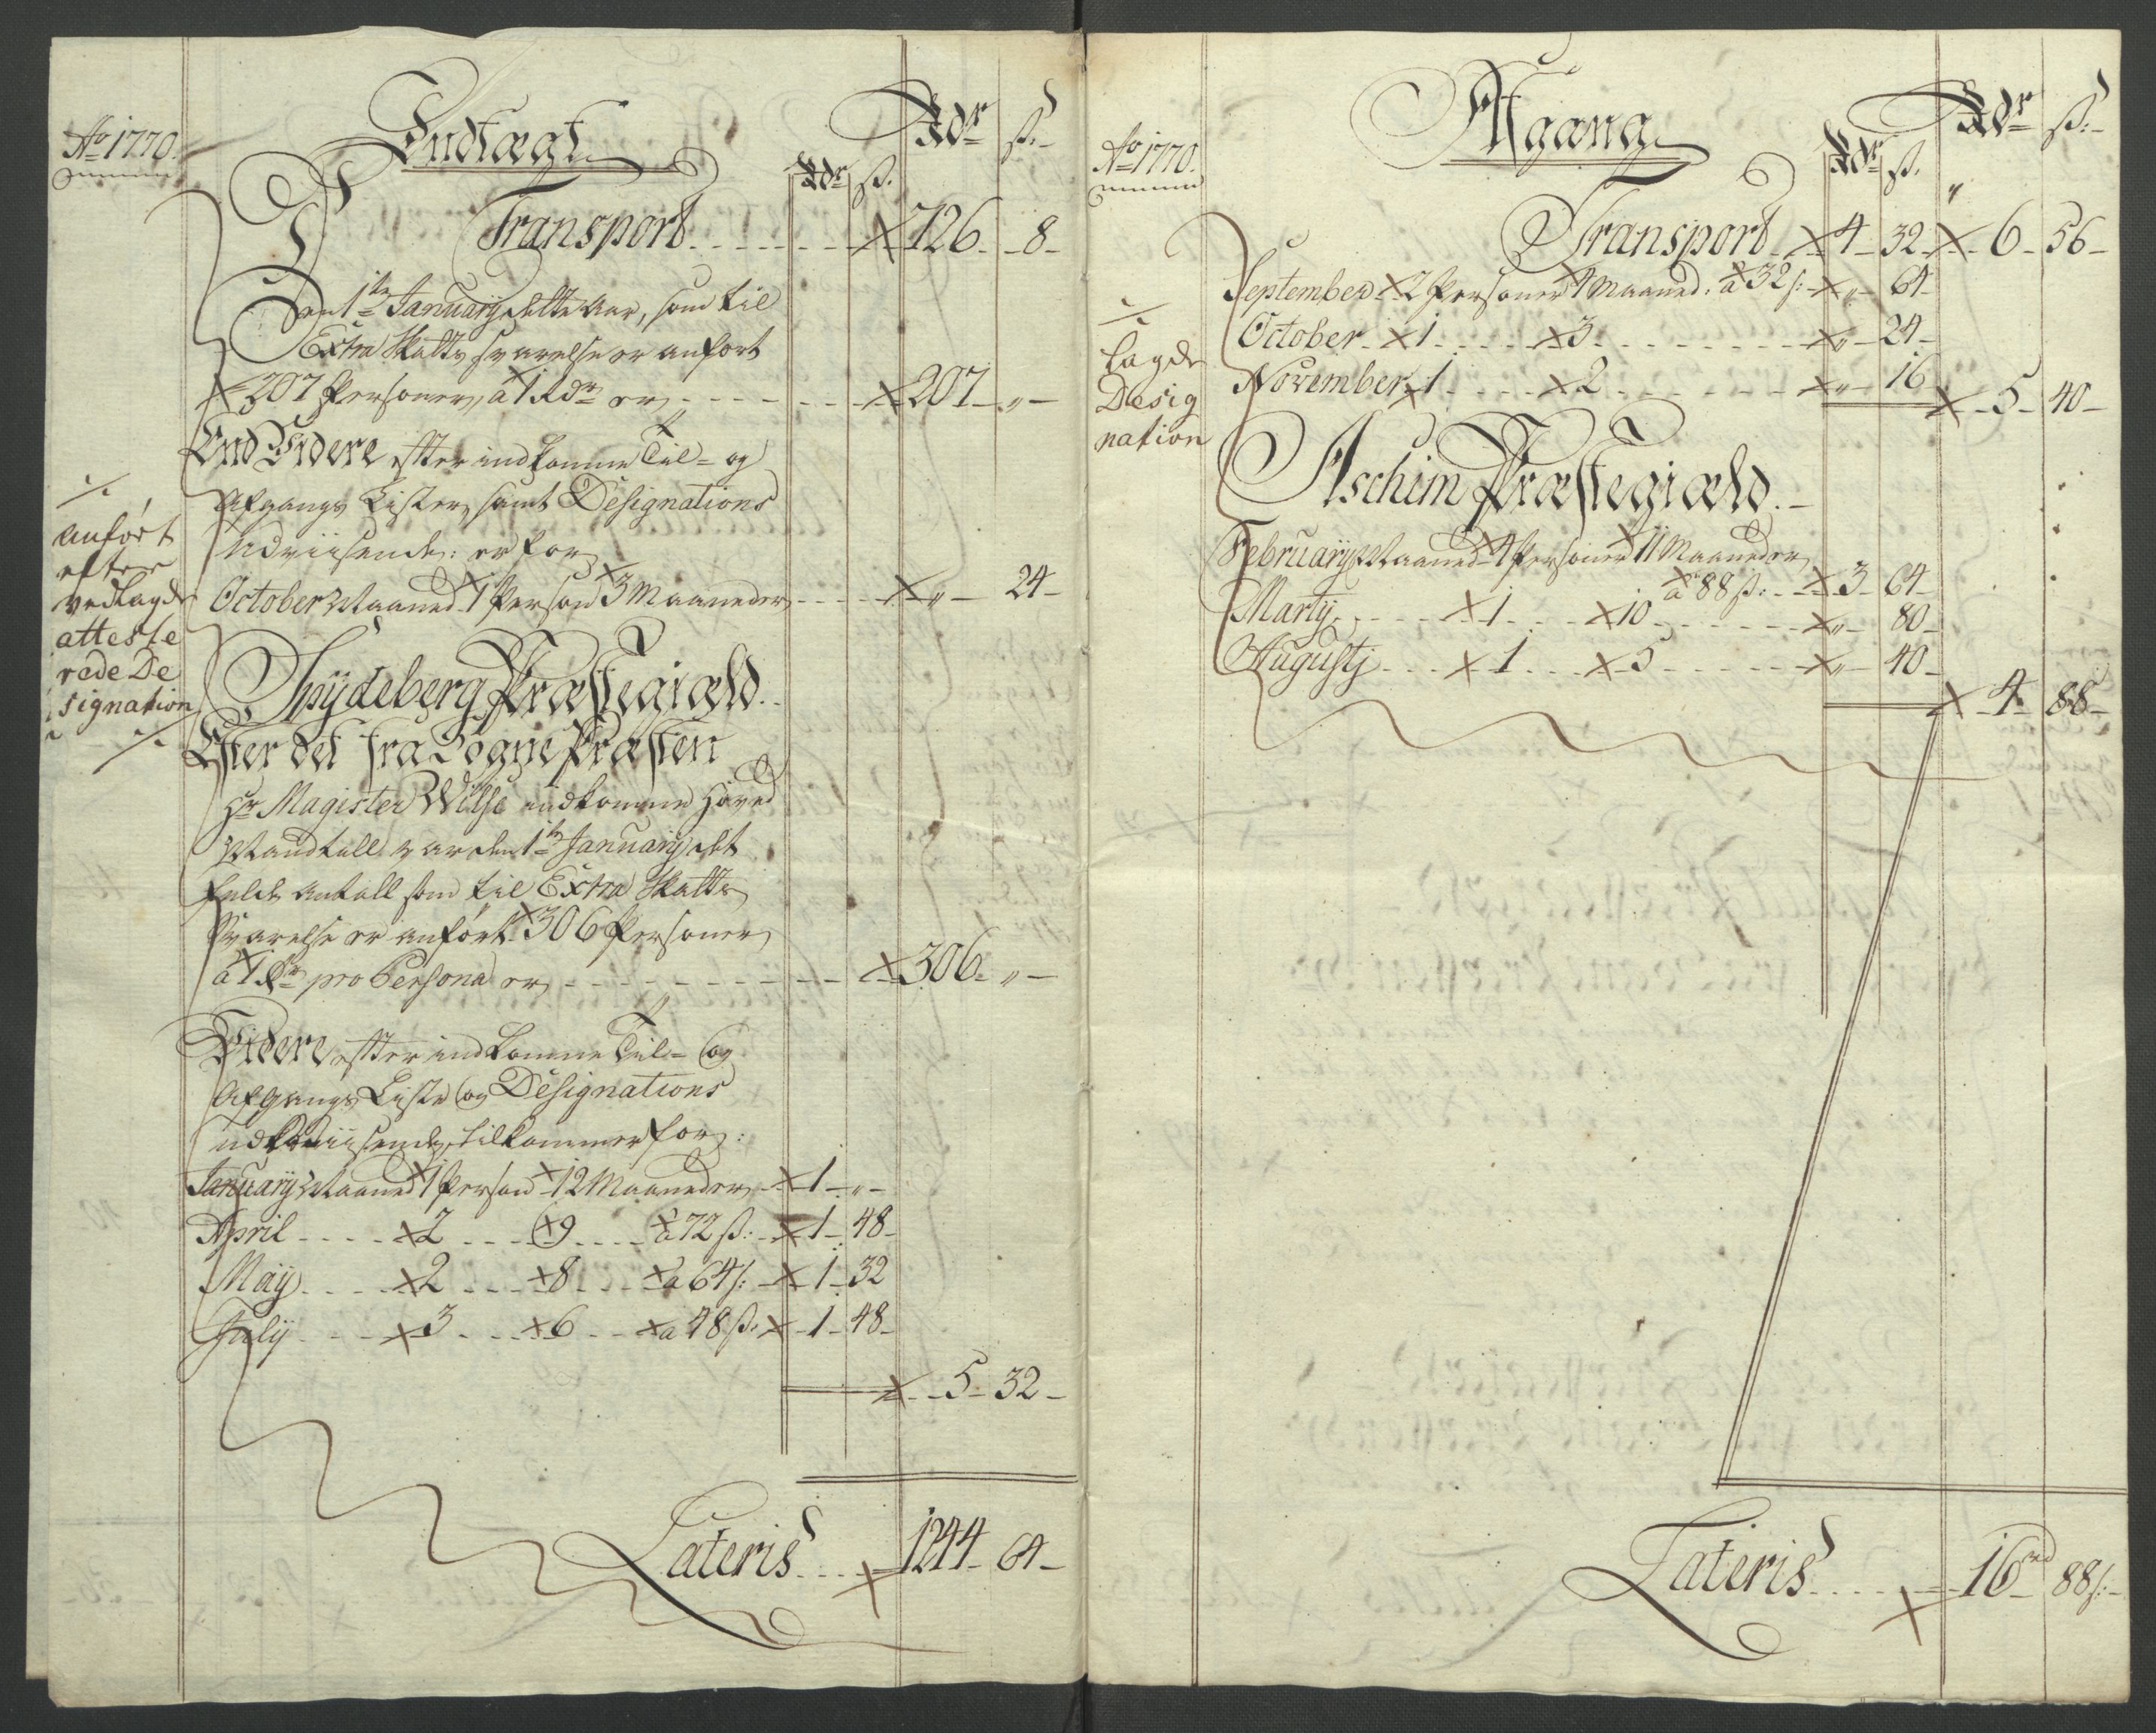 Ao 1770.
Indtægt
Rdr ß.
Rdr ß.
Transport 726 8
Den 1te January dette Aar, som til
Extra Skatts svarelse er anført
207 Personer, a 1 Rdr er 207 „
End Videre efter indkomne Til- og
Afgangs Lister, samt Designations
Udviisende: er for
October Maaned 1 Person 3 Maaneder „ 24
./.
anført
efter
vedlagde
atteste
rede De
signation
./.
Spydeberg Præstegiæld.
Efter det fra Sogne Præsten
Hr Magister Wilse indkomne Hoved
Mandtall var den 1te January det
fulde Antall som til Extra Skatts
Svarelse er anført 306 Personer
a 1 Rdr pro Persona er 306 „
Videre efter indkomne Til- og
Afgangs Liste og Designations
udviisende, tilkommer for:
January Maaned 1 Person 12 Maaneder 1 „
April 2 9 a 72 ß: 1 48
May 2 8 a 64 ß: 1 32
July 3 6 a 48 ß: 1 48
5 32
Lateris 1244 64
Ao 1770.
Afgang
Rdr ß.
Rdr ß.
Transport 4 32 6 56
September 2 Personer 4 Maaned: a 32 ß: „ 64
October 1 3 „ 24
November 1 2 „ 16
5 40
./.
lagde
Desig
nation
Aschim Præstegiæld.
February Maaned 4 Personer 11 Maaneder
a 88 ß: 3 64
Marty 1 10 „ 80
Augusty 1 5 „ 40
4 88
Lateris 16rd 88 ß: